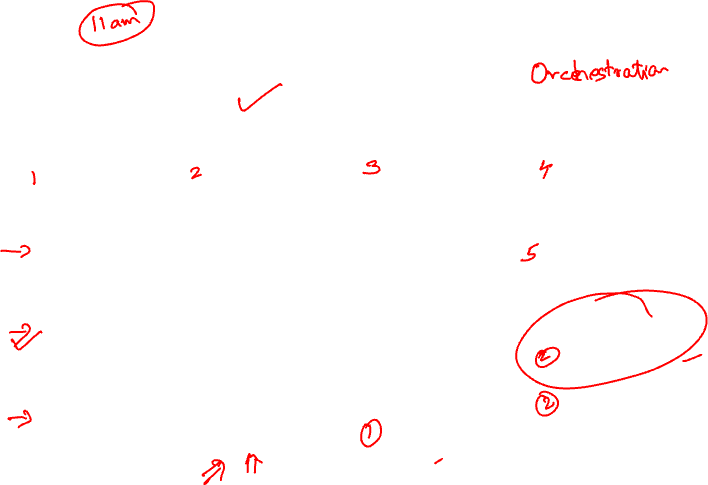 11am
Orchestration
1 2 3 4
5
2
2
1